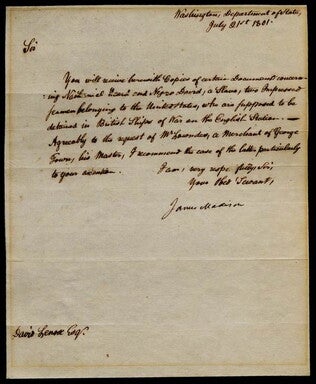 Washington, Department of State,
July 21st 1801.
Sir
You will receive herewith Copies of certain Documents concern
ing and Negro David, a Slave, two Impressed
Seamen belonging to the United States, who are supposed to be
detained in British Ships of War on the English Station. —
Agreeably to the request of Mr a Merchant of George
Town, his Master, I recommend the case of the latter particularly
to your attention.
I am, very respectfully Sir,
Your Obt Servant,
James Madison
David Lenox Esqr.